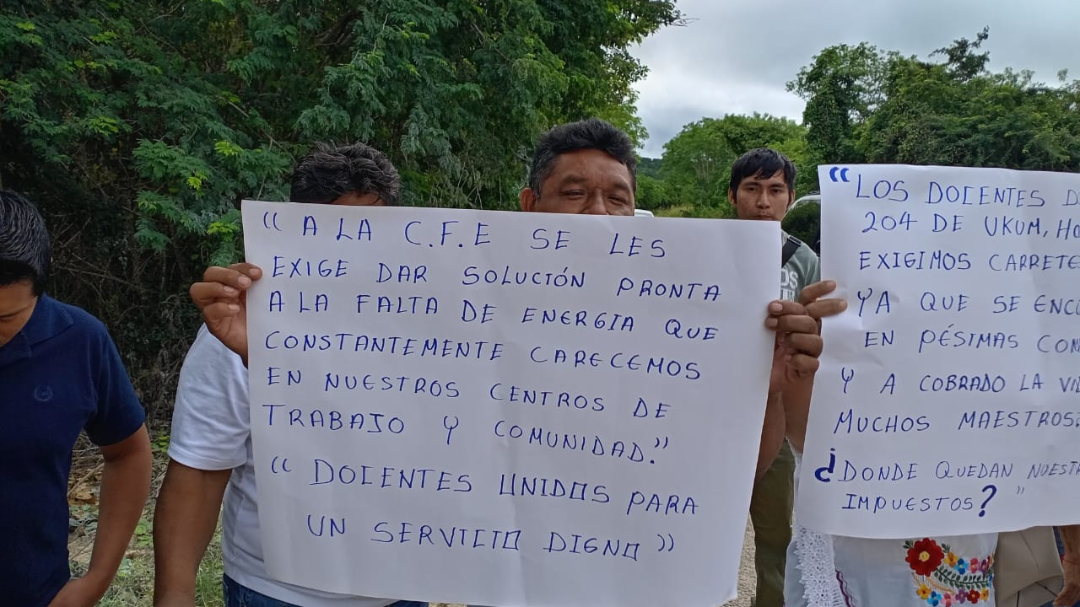 “ A LA C.F.E SE LES
EXIGE DAR SOLUCIÓN PRONTA
A LA FALTA DE ENERGIA QUE
CONSTANTEMENTE CARECEMOS
EN NUESTROS CENTROS DE
TRABAJO Y COMUNIDAD.”
“ DOCENTES UNIDOS PARA
UN SERVICIO DIGNO ”
“LOS DOCENTES
204 DE UKUM,
EXIGIMOS
YA QUE SE
EN PÉSIMAS
Y A COBRADO LA
MUCHOS MAESTROS
¿DONDE QUEDAN
IMPUESTOS? ”